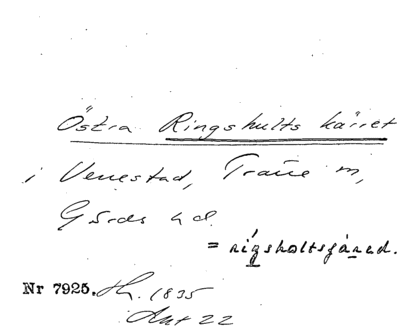 Östra Ringshults kärret
i Venestad, Träne m,
Gärds hd.
= rígsholtsjáred.
Nr 7925. Th. 1835
Akt 22